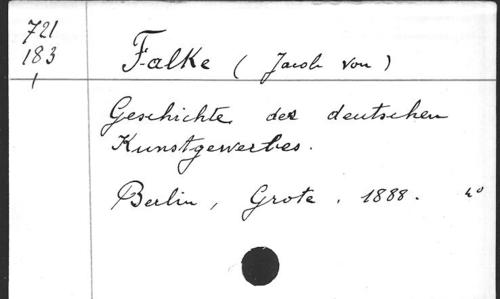 721
183
1
Falke (Jacob von)
Geschichte des deutschen
Kunstgewerbes.
Berlin, Grote. 1888. 4°